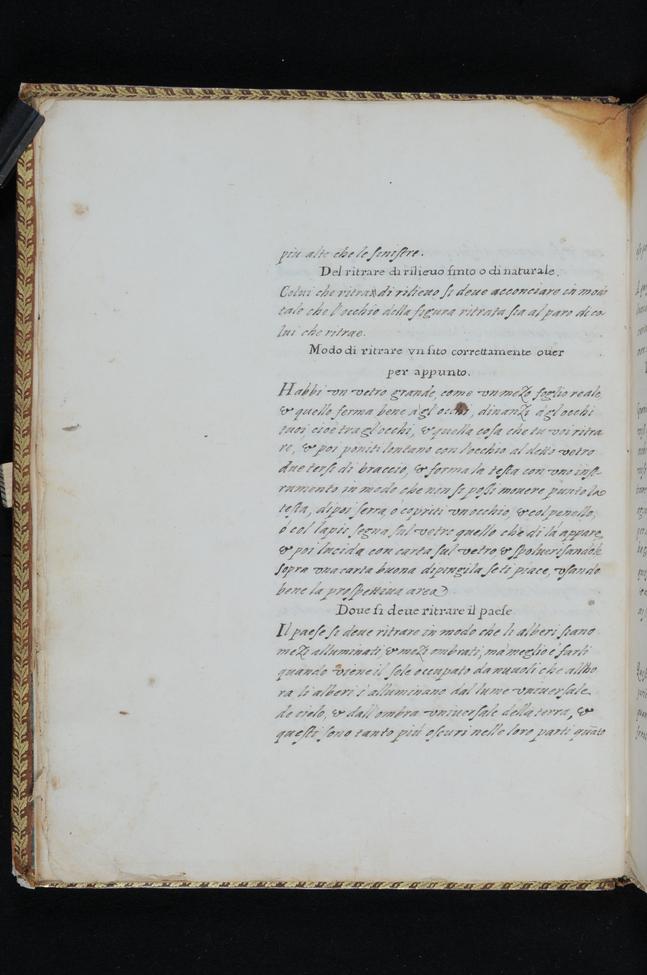 più alte che le sinistre.
Del ritrare di rilieuo finto o di naturale.
Colui che ritrae di rilieuo si deue acconciare in modo
tale che l'occhio della figura ritratta sia al paro di co
lui che ritrae.
Modo di ritrare vn sito correttamente ouer
per appunto.
Habbi vn vetro grande, come vn mezo foglio reale,
& quello ferma bene à gl'occhi, dinanzi à gl'occhi
tuoi, cioè tra gl'occhi, & quella cosa che tu voi ritra
re, & poi poniti lontano con l'occhio al detto vetro
due terse di braccio, & forma la testa con vno inst-
rumento in modo che non si possi mouere punto la
testa, dipoi serra, ò copriti vn occhio, & col penello,
ò col lapis segna sul vetro quello che di là appare,
& poi lucida con carta sul vetro, & spoluerisandole
sopra vna carta buona dipingila se ti piace, vsando
bene la prospettiua area
Doue si deue ritrare il paese
Il paese si deue ritrare in modo che li alberi siano
mezi alluminati, & mezi ombrati, ma meglio è farli
quando viene il sole occupato da nuuoli che allho
ra li alberi s'alluminano dal lume vniuersale
de cielo, & dall'ombra vniuersale della terra, &
questi sono tanto più oscuri nelle loro parti quāto